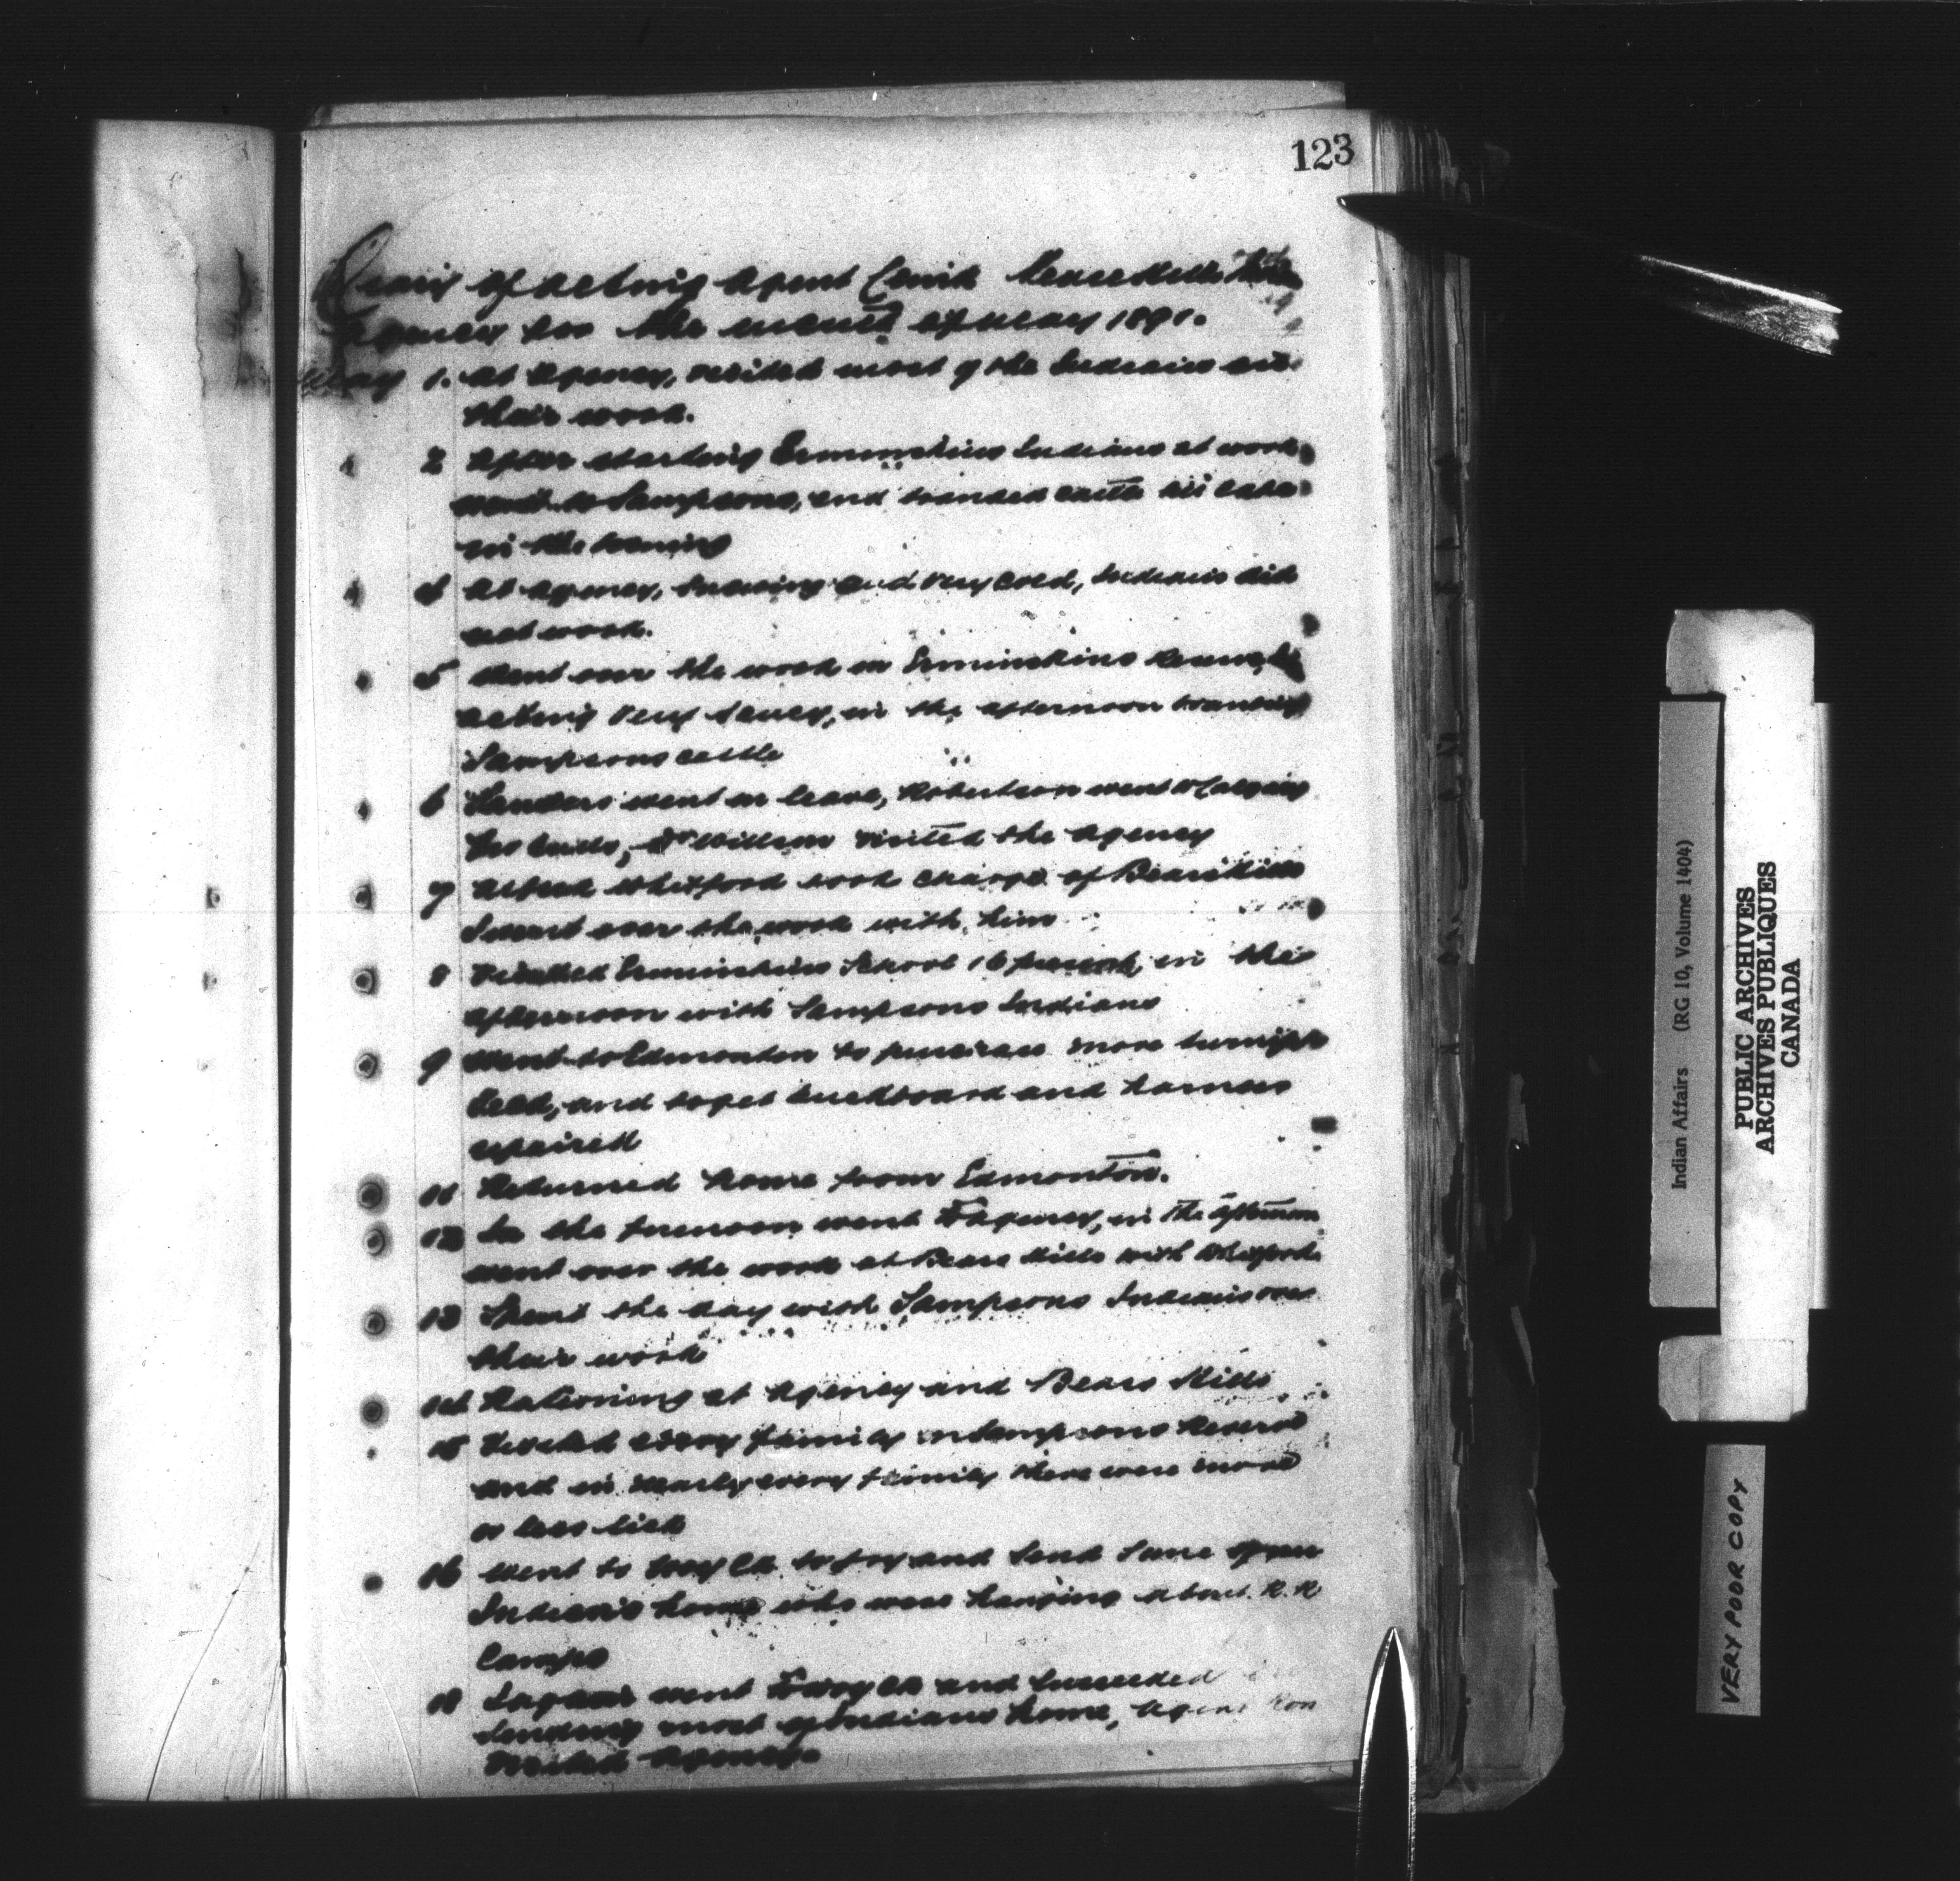 123
Diary of acting Agent
Agency for the month of May 1891.
May 1. At Agency, visited most of the Indians at
their work.
2 After starting Ermineskins Indians at work
went to Sampsons, and branded cattle till late
in the evening
4 At Agency, snowing and very cold, Indians did
not work.
5 Went over the work on Ermineskins Reserve,
acting very saucy, in the afternoon branding
Sampsons cattle
6 Landers went on leave, Robertson went to Calgary
for bulls, visited the Agency
7 Whitford took charge of Bears Hills
I went over the work with him
8 Visited Ermineskins School 16 present, in the
afternoon with Sampsons Indians
9 Went to Edmonton to purchase more turnip
Seed, and to get buckboard and harness
repaired
11 Returned home from Edmonton.
12 In the forenoon went To Agency, in the afternoon
went over the work at Bears Hills with Whitford.
13 Spent the day with Sampsons Indians over
their work
14 Rationing at Agency and Bears Hills
15 Visited every family on Sampsons Reserve
and in nearly every family there were more
or less sick
16 Went to to try and send some
Indians home who were hanging about R.R
Camps
18 I again went and succeeded
sending most of Indians home, Agent
visited Agency.
Indian Affairs (RG 10, Volume 1404)
PUBLIC ARCHIVES
ARCHIVES PUBLIQUES
CANADA
VERY POOR COPY